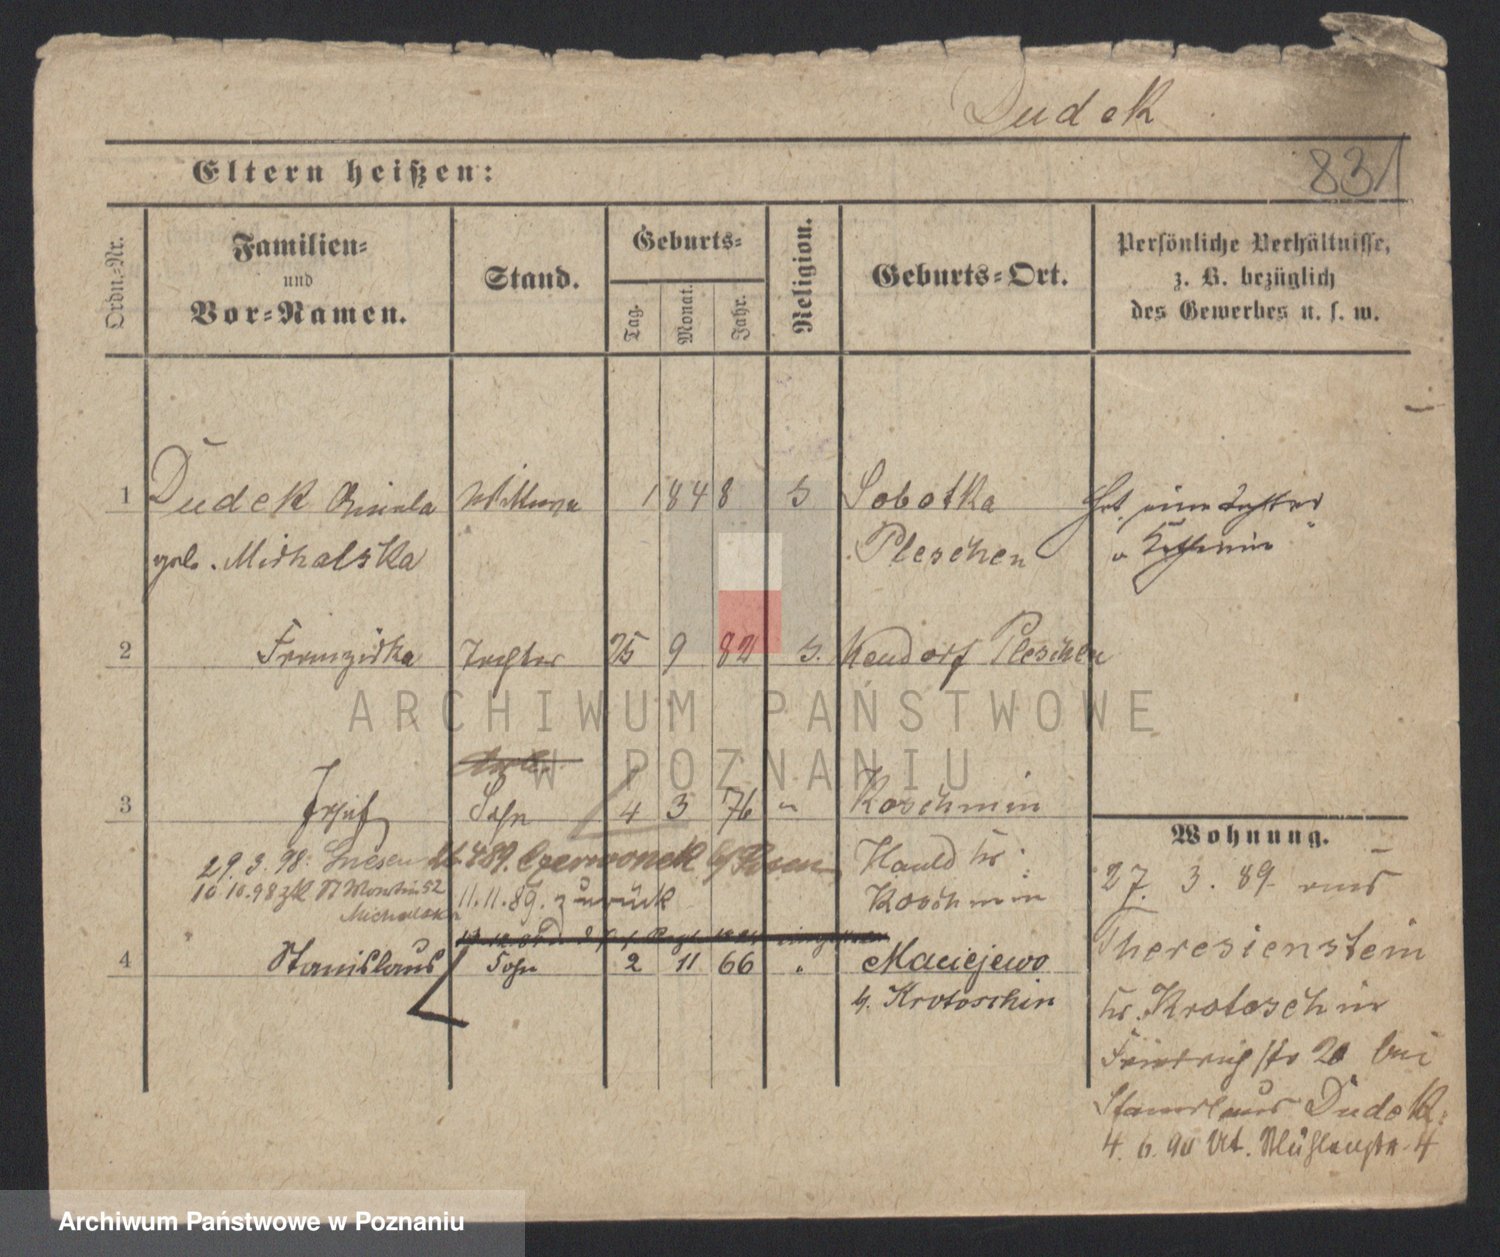 Dudek
831
Eltern heißen:
Ordn.-Nr.
Familien-
und
Vor-Namen.
Stand.
Geburts-
Tag.
Monat.
Jahr.
Religion.
Geburts-Ort.
Persönliche Verhältnisse,
z. B. bezüglich
des Gewerbes u. s. w.
1 Dudek Wittwe 1848 Sobotka
geb. Michalska Pleschen
2 Franziska Tochter 25 9 82 Pleschen
ARCHIWUM PAŃSTWOWE
W POZNANIU
3 Josef Sohn 4 3 76 " Koschmin
Wohnung.
29.3.98. Gnesen 89. Czerwonek b/Posen
10.10.98 zk 11.11.89. zurück Koschmin
27. 3. 89. aus
Michalska
4 Stanislaus Sohn 2 11 66 " Maciejewo
b. Krotoschin
Theresienstein
Kr. Krotoschin
20 bei
Stanislaus Dudek.
4. 6. 90 Mühlenstr. 4
Archiwum Państwowe w Poznaniu